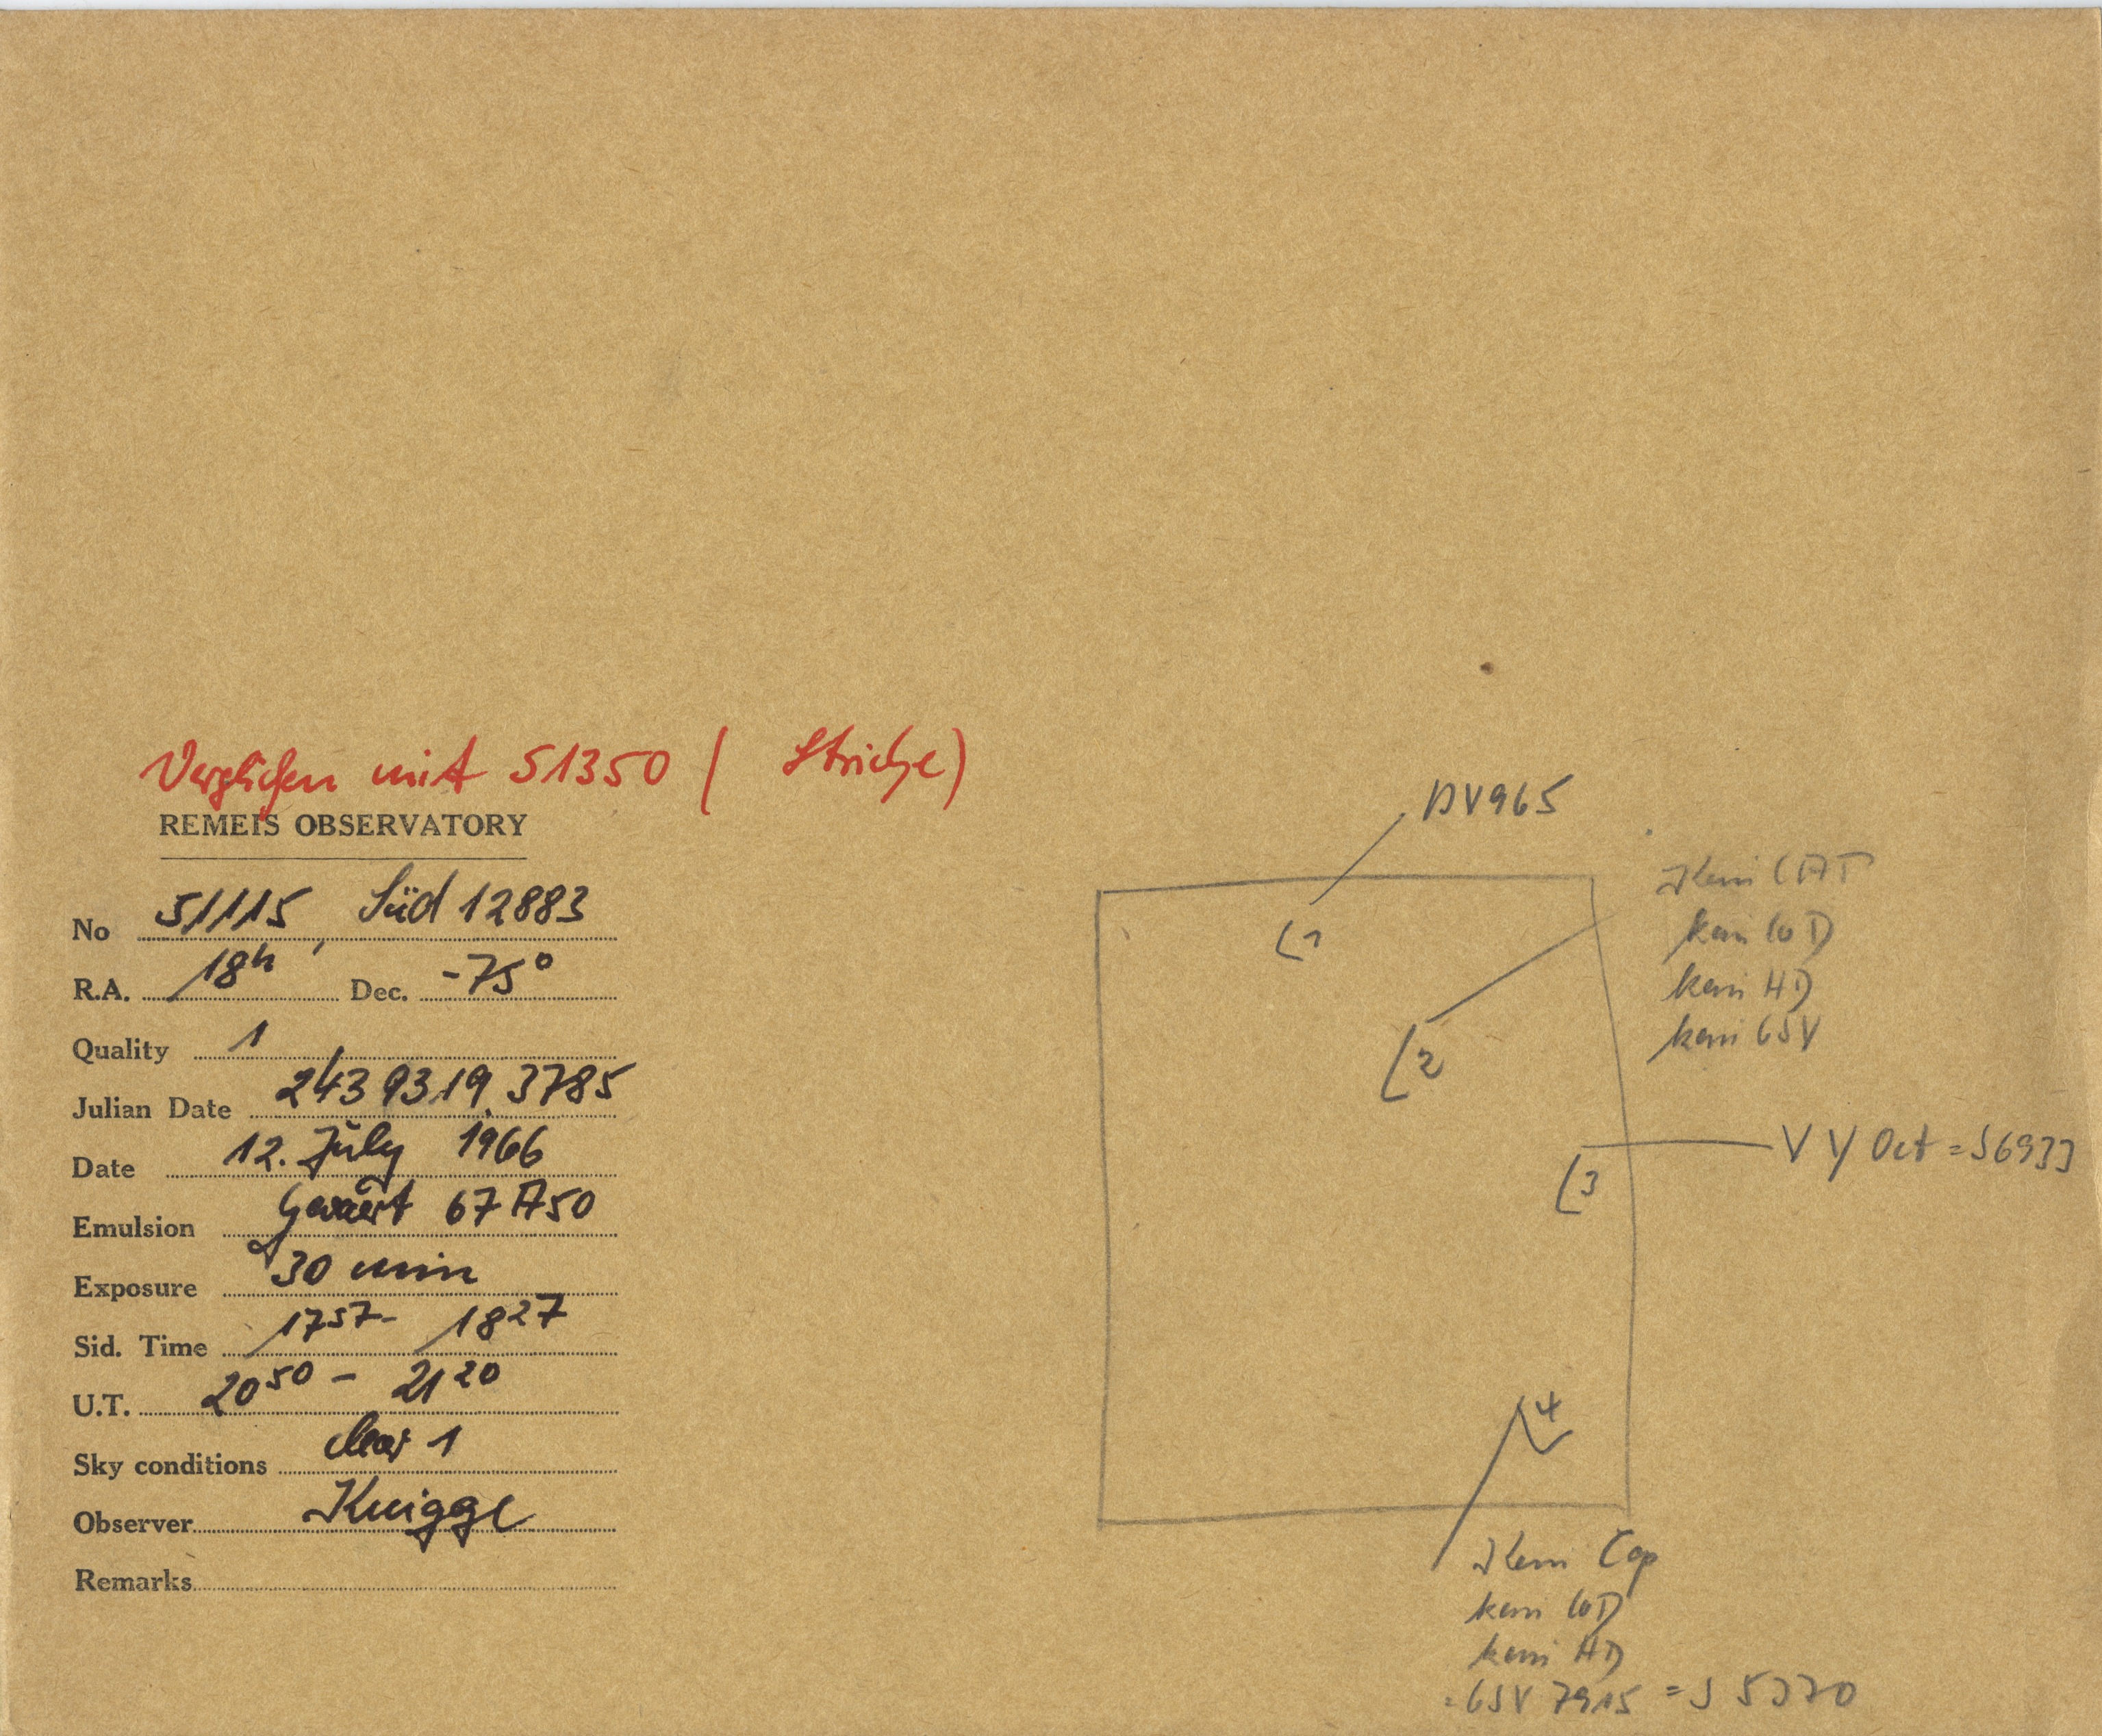 Verglichen mit 51350 ( Striche)
REMEIS OBSERVATORY
No 51115, Süd 12883
R.A. 18h Dec. -75°
Quality 1
Julian Date 243 9319.3785
Date 12. July 1966
Emulsion Gevaert 67 A50
Exposure 30 min
Sid. Time 17 57 - 18 27
U.T. 20 50 - 21 20
Sky conditions clear 1
Observer Knigge
Remarks
DV965
1
2
Kein CAP
kein CoD
kein HD
kein CSV
3
VY Oct = S6933
4
Kein Cap
kein CoD
kein HD
= CSV 7915 = S 5370